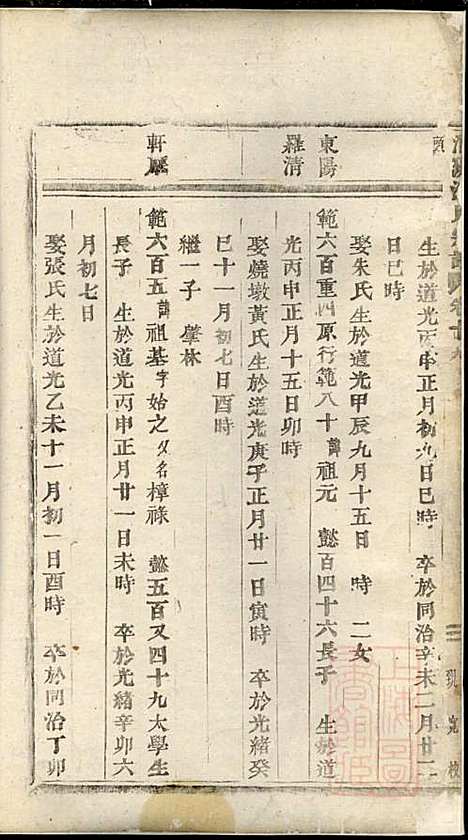 頭
生於道光丙申正月初九日巳時 卒於同治辛未二月廿二
日巳時
娶朱氏生於道光甲辰九月十五日 時 二女
東陽
範六百重四原行範八十諱祖元 懿百四十六長子 生於道
光丙申正月十五日卯時
羅清
娶燒墩黃氏生於道光庚子正月廿一日寅時 卒於光緒癸
巳十一月初七日酉時
繼一子 肇林
軒
範六百五諱祖基字始之又名樟祿 懿五百又四十九太學生
長子 生於道光丙申正月廿一日未時 卒於光緒辛卯六
月初七日
娶張氏生於道光乙未十一月初一日酉時 卒於同治丁卯